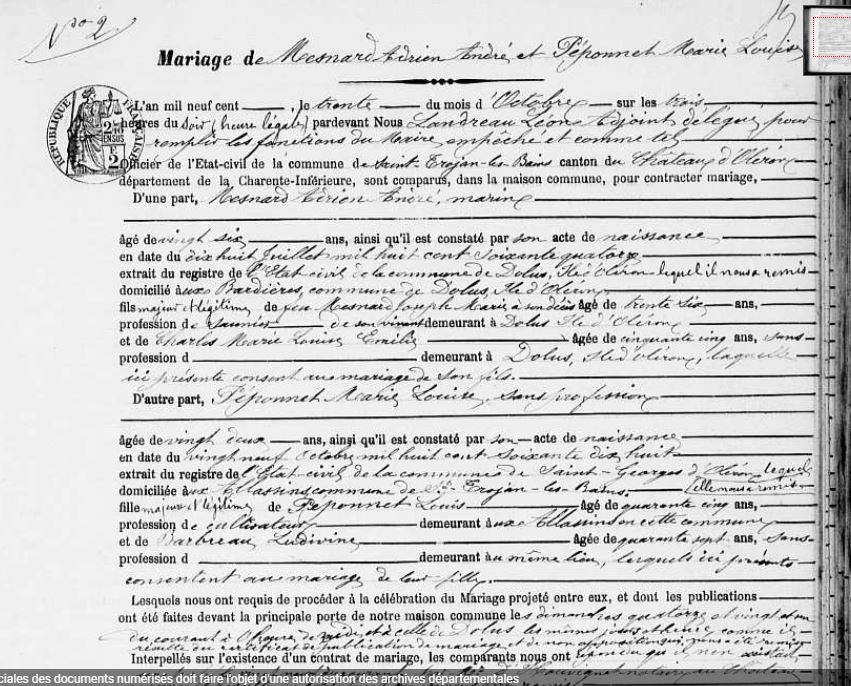 No 2
Mariage de Mesnard Adrien André et Péponnet Marie Louise
RÉPUBLIQUE FRANÇAISE
L'an mil neuf cent, le trente du mois d'Octobre sur les trois
heures du soir (heure légale) pardevant Nous Landreau Léon Adjoint délégué pour
remplir les fonctions du Maire empêché et comme tel
officier de l'Etat-civil de la commune de Saint-Trojan-les-Bains canton du Chateau d'Oléron
département de la Charente-Inférieure, sont comparus, dans la maison commune, pour contracter mariage,
D'une part, Mesnard Adrien André, marin
âgé de vingt six ans, ainsi qu'il est constaté par son acte de naissance
en date du dix huit Juillet mil huit cent soixante quatorze
extrait du registre de l'Etat civil de la commune de Dolus, Ile d'Oléron lequel il nous a remis
domicilié aux Bardières, commune de Dolus, Ile d'Oléron
fils majeur et légitime de feu Mesnard Joseph Marie à son décès âgé de trente six ans,
profession de saunier de son vivant demeurant à Dolus Ile d'Oléron
et de Charles Marie Louise Emilie âgée de cinquante cinq ans, sans
profession d demeurant à Dolus, Ile d'Oléron, laquelle
ici présente consent au mariage de son fils.
D'autre part, Péponnet Marie Louise, sans profession
âgée de vingt deux ans, ainsi qu'il est constaté par son acte de naissance
en date du vingt neuf Octobre mil huit cent soixante dix huit
extrait du registre de l'Etat-civil de la commune de Saint-Georges d'Oléron lequel
domiciliée aux Allassins commune de St-Trojan-les-Bains. elle nous a remis
fille majeure et légitime de Péponnet Louis âgé de quarante cinq ans,
profession de cultivateur demeurant aux Allassins en cette commune
et de Barbreau Ludivine âgée de quarante sept ans, sans
profession d demeurant au même lieu, lesquels ici présents
consentent au mariage de leur fille.
Lesquels nous ont requis de procéder à la célébration du Mariage projeté entre eux, et dont les publications
ont été faites devant la principale porte de notre maison commune les dimanches quatorze et vingt et un
du courant à l'heure de midi, et à celle de Dolus les mêmes jours et heure comme il
résulte du certificat de publication de mariage et de non opposition qui nous a été remis
Interpellés sur l'existence d'un contrat de mariage, les comparants nous ont
notaire au Chateau
ciales des documents numérisés doit faire l'objet d'une autorisation des archives départementales